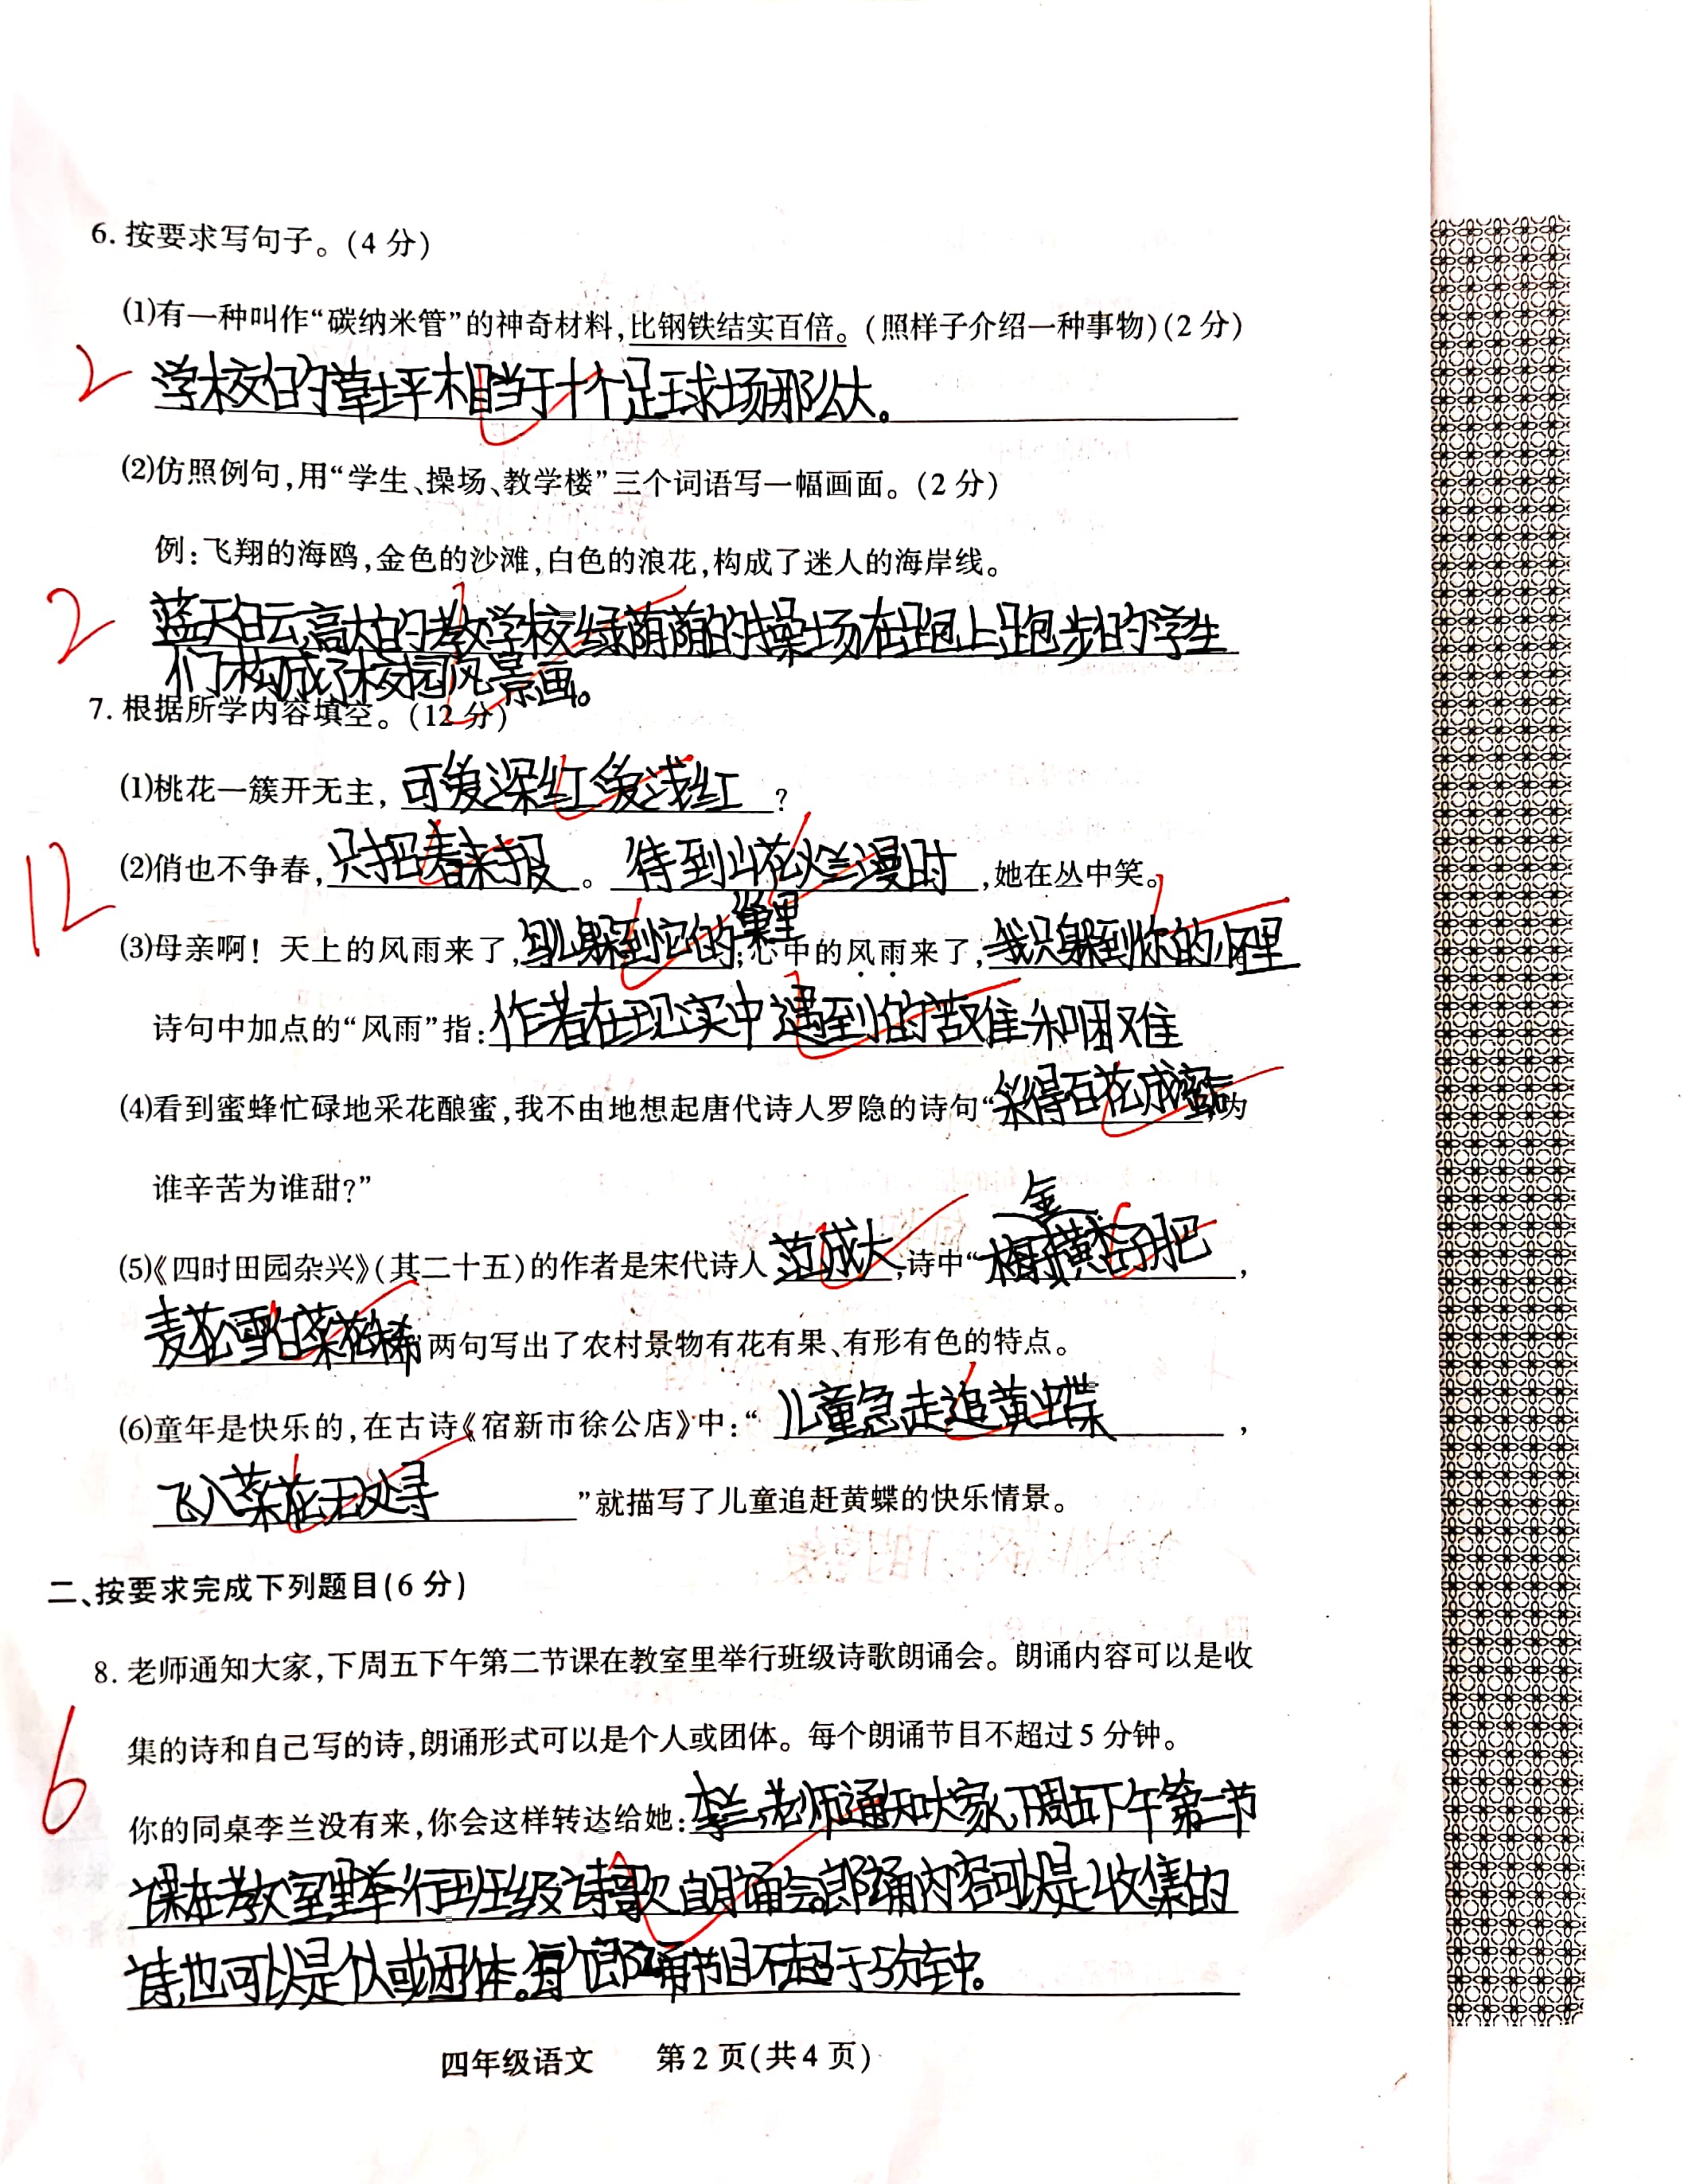 6. 按要求写句子。(4 分)
(1)有一种叫作“碳纳米管”的神奇材料,比钢铁结实百倍。(照样子介绍一种事物)(2 分)
2
学校的草坪相当于十个足球场那么大。
(2)仿照例句,用“学生、操场、教学楼”三个词语写一幅画面。(2 分)
例:飞翔的海鸥,金色的沙滩,白色的浪花,构成了迷人的海岸线。
2
蓝天白云,高大的教学校,绿荫荫的操场在跑上跑步的学生
们构成了校园风景画。
7. 根据所学内容填空。(12 分)
(1)桃花一簇开无主,可爱深红爱浅红?
12
(2)俏也不争春,只把春来报。待到山花烂漫时,她在丛中笑。
(3)母亲啊!天上的风雨来了,鸟儿躲到它的巢里;心中的风雨来了,我只躲到你的怀里
诗句中加点的“风雨”指:作者在现实中遇到的苦难和困难
(4)看到蜜蜂忙碌地采花酿蜜,我不由地想起唐代诗人罗隐的诗句“采得百花成蜜后,为
谁辛苦为谁甜?”
(5)《四时田园杂兴》(其二十五)的作者是宋代诗人范成大,诗中“梅子金黄杏子肥,
麦花雪白菜花稀”两句写出了农村景物有花有果、有形有色的特点。
(6)童年是快乐的,在古诗《宿新市徐公店》中:“儿童急走追黄蝶,
飞入菜花无处寻”就描写了儿童追赶黄蝶的快乐情景。
二、按要求完成下列题目(6 分)
8. 老师通知大家,下周五下午第二节课在教室里举行班级诗歌朗诵会。朗诵内容可以是收
集的诗和自己写的诗,朗诵形式可以是个人或团体。每个朗诵节目不超过 5 分钟。
6
你的同桌李兰没有来,你会这样转达给她:李兰,老师通知大家,下周五下午第二节
课在教室里举行班级诗歌朗诵会。郎诵内容可以是收集的
诗,也可以是个人或团体。每个郎诵节目不超于5分钟。
四年级语文 第 2 页(共 4 页)